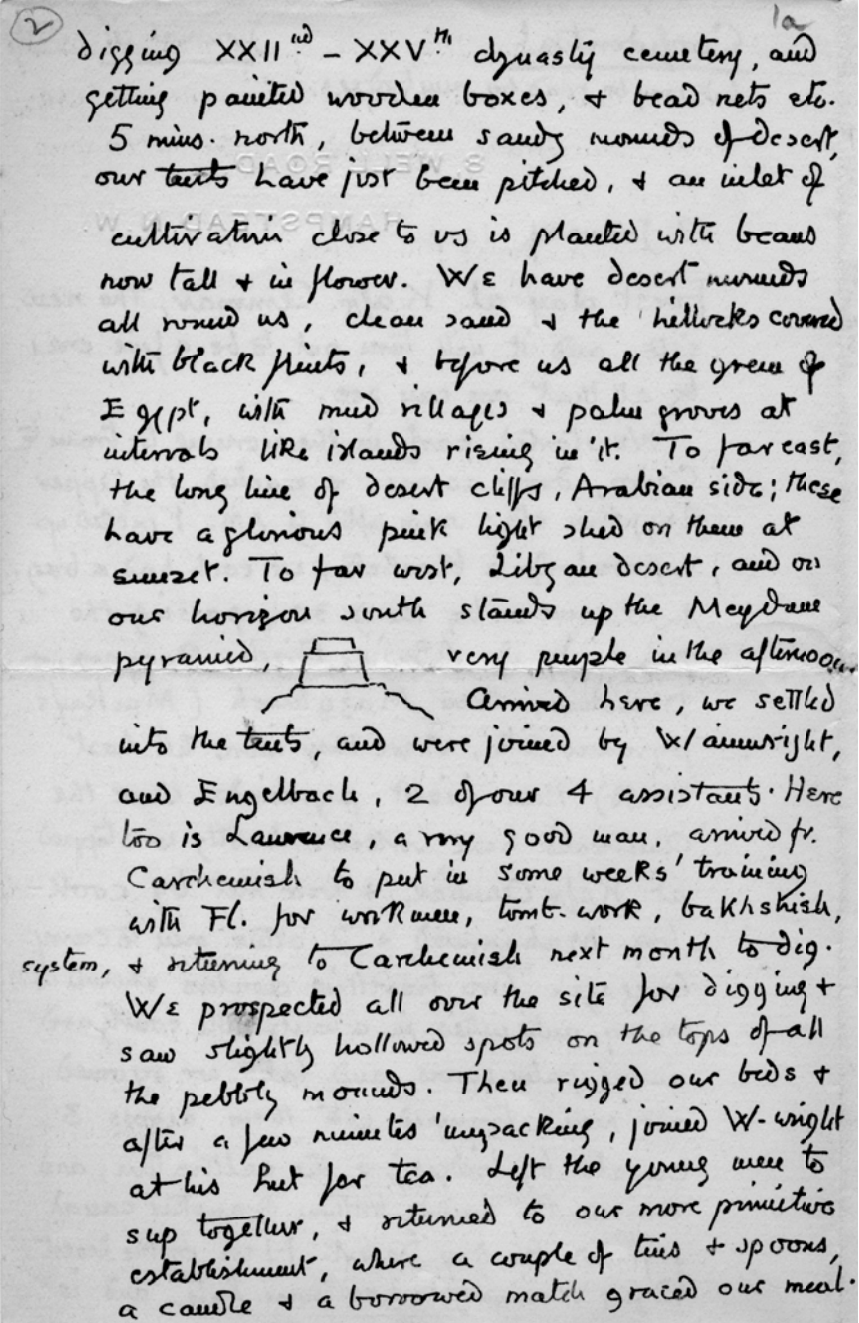 2
1a
digging XXII nd - XXV th dynasty cemetery, and
getting painted wooden boxes, & bead nets etc.
5 mins. north, between sandy mounds of desert,
our tents have just been pitched, & an inlet of
cultivation close to us is planted with beans
now tall & in flower. We have desert mounds
all round us, clean sand & the hillocks covered
with black flints, & before us all the green of
Egypt, with mud villages & palm groves at
intervals like islands rising in it. To far east,
the long line of desert cliffs, Arabian side; these
have a glorious pink light shed on them at
sunset. To far west, Libyan desert, and on
our horizon south stands up the Meydum
pyramid, very purple in the afternoon.
Arrived here, we settled
into the tents, and were joined by Wainwright,
and Engelbach, 2 of our 4 assistants. Here
too is Lawrence, a very good man, arrived fr.
Carchemish to put in some weeks' training
with Fl. for workmen, tomb-work, bakhshish,
system, & returning to Carchemish next month to dig.
We prospected all over the site for digging &
saw slightly hollowed spots on the tops of all
the pebbly mounds. Then rigged our beds &
after a few minutes' unpacking, joined W-wright
at his hut for tea. Left the young men to
sup together, & returned to our more primitive
establishment, where a couple of tins & spoons,
a candle & a borrowed match graced our meal.